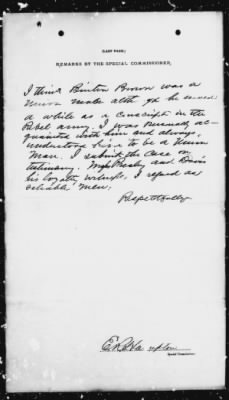 (LAST PAGE.)
REMARKS BY THE SPECIAL COMMISSIONER.
I think Brown was a
Union altho he served
a while as a Conscript in the
Rebel army. I was personally ac-
quainted with him and always
understood him to be a Union
Man. I submit the Case on
testimony. and Davis
his loyalty witnesses, I regard as
reliable men,
Respectfully
Special Commissioner.